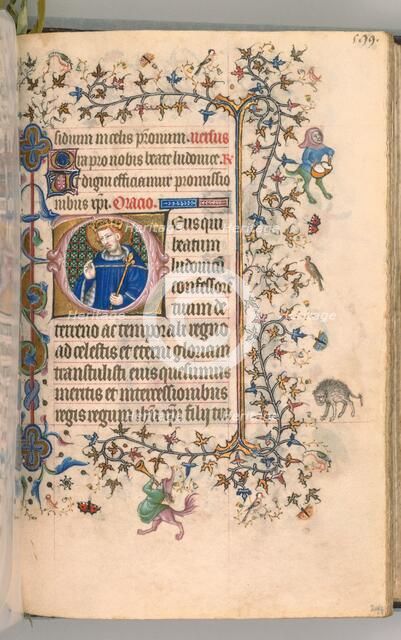 599.
sidum in celis p̄conum. Versus
Ora pro nobis beate ludouice. R
Ut digni efficiamur promissio
nibus xp̄i. Oracio.
Deus qui
beatum
ludouicū
confessorē
tuum de
terreno ac temporali regno
ad celestis et eterni gloriam
transtulisti eius quesumus
meritis et intercessionibus
regis regum ihū xp̄i filij tui
Heritage
Images